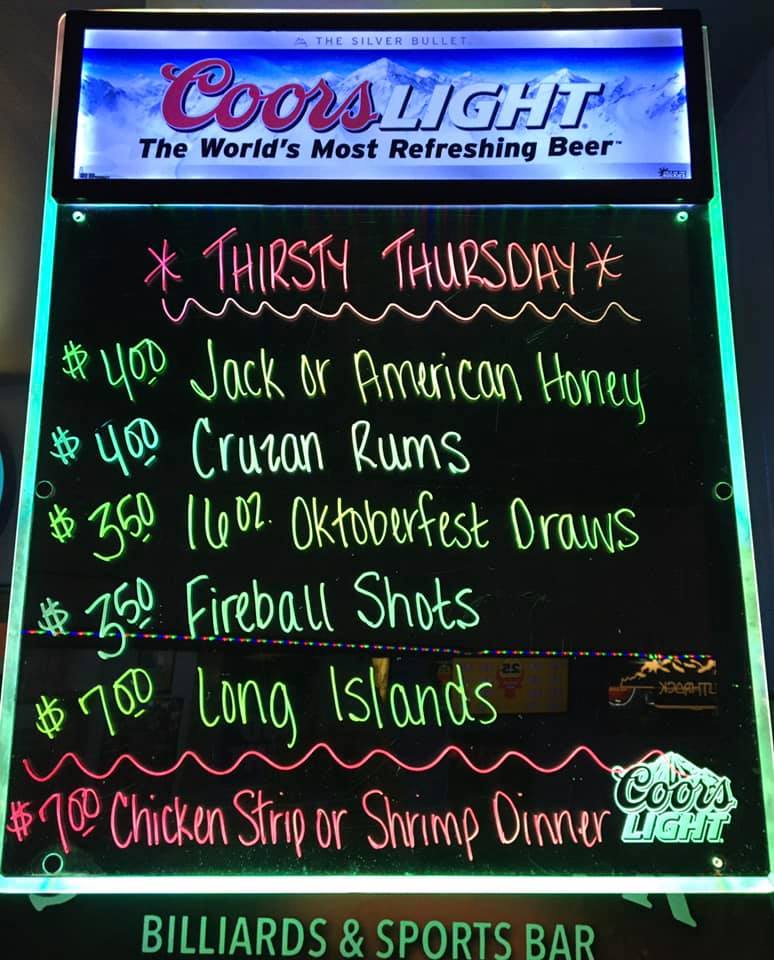 THE SILVER BULLET
Coors LIGHT
The World's Most Refreshing Beer™
* THIRSTY THURSDAY *
$4.00 Jack or American Honey
$4.00 Cruzan Rums
$3.50 16 oz. Oktoberfest Draws
$3.50 Fireball Shots
$7.00 Long Islands
$7.00 Chicken Strip or Shrimp Dinner
Coors
LIGHT
BILLIARDS & SPORTS BAR